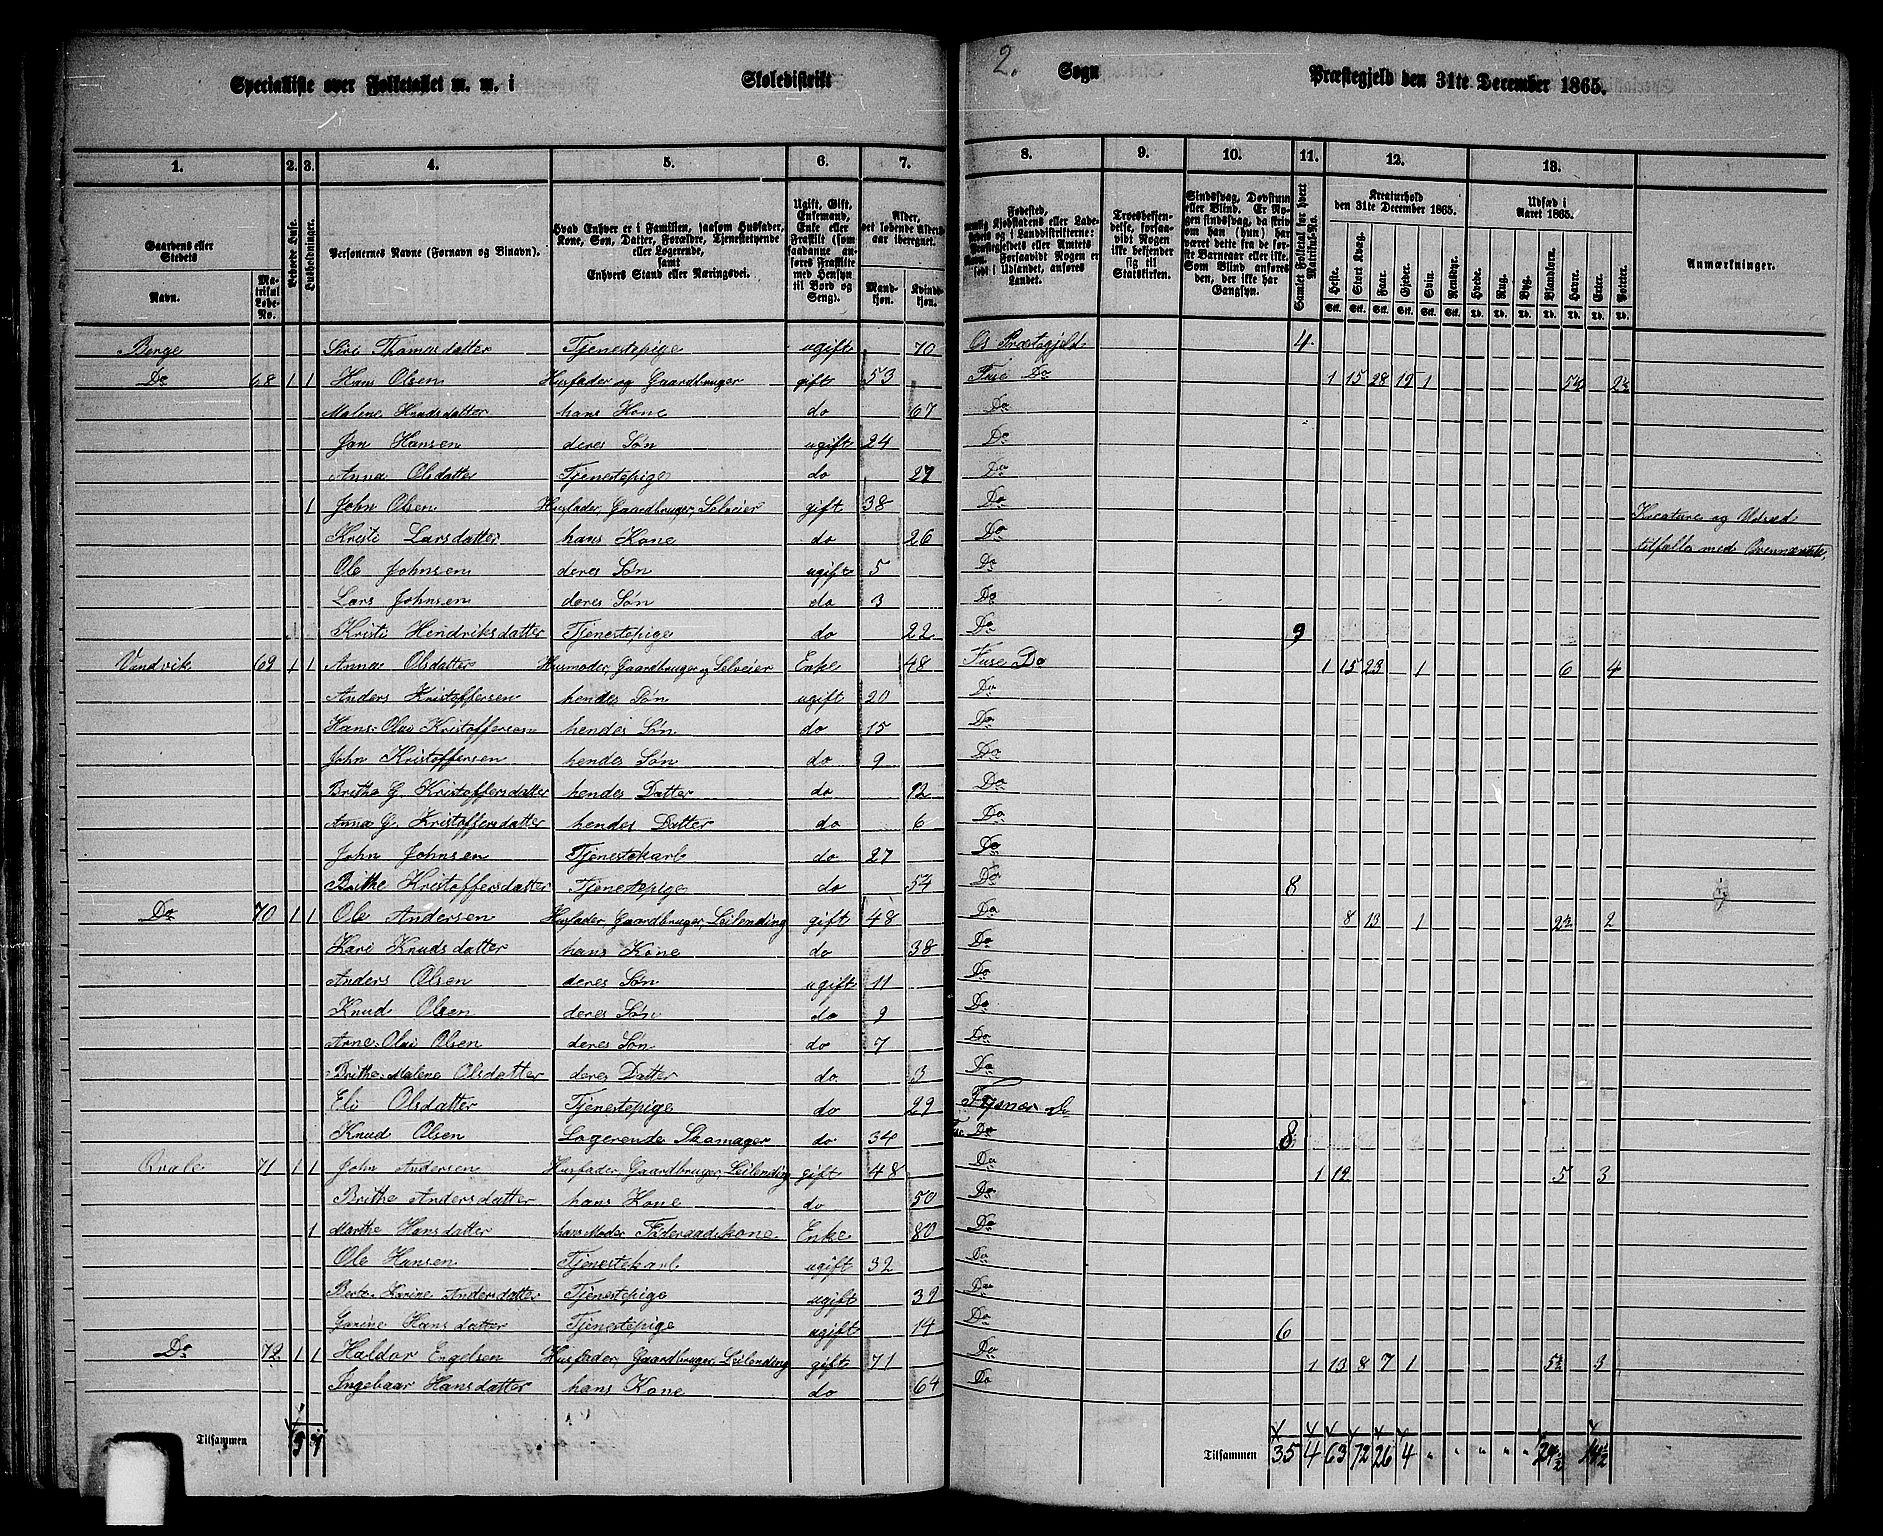 Specialliste over Folketallet m. m. i Skoledistrikt 2. Sogn Præstegjeld den 31te December 1865.
1. 2. 3. 4. 5. 6. 7. 8. 9. 10. 11. 12. 13.
Gaardens eller Stedets
Navn.
Matrikul Løbe-No.
Beboede Huse.
Husholdninger.
Personernes Navne (Fornavn og Binavn).
Hvad Enhver er i Familien, saasom Husfader, Kone, Søn, Datter, Forældre, Tjenestetyende eller Logerende, samt Enhvers Stand eller Næringsvei.
Ugift, Gift, Enkemand, Enke eller Fraskilt (som saadanne anføres Fraskilte med Hensyn til Bord og Seng).
Alder, det løbende Alders-aar iberegnet.
Mandkjøn.
Kvindekjøn.
Troesbekjendelse, forsaavidt Nogen ikke bekjender sig til Statskirken.
Sindssvag, Døvstum eller Blind. Er Nogen sindssvag, da skrives om han (hun) har været dette fra de første Barneaar eller ikke. Som Blind anføres den, der ikke har Gangsyn.
Samlet Folketal for hvert Matrikul-No.
Kreaturhold den 31te December 1865.
Heste. Stort Kvæg. Faar. Gjeder. Svin. Rensdyr.
Udsæd i Aaret 1865.
Hvede. Rug. Byg. Blandkorn. Havre. Erter. Poteter.
Anmærkninger.
Berge Siri Thomasdatter Tjenestepige ugift 70 Os Præstegjeld 4
Do 68 1 1 Hans Olsen Husfader og Gaardbruger gift 53 Fuse Do 1 15 28 12 1
Malene Knudsdatter hans Kone do 67 Do
Jan Hansen deres Søn ugift 24 Do
Anna Olsdatter Tjenestepige do 27 Do
1 John Olsen Husfader, Gaardbruger, Selveier gift 38 Do Kreature og Udsæd
Kristi Larsdatter hans Kone do 26 Do tilfælles med
Ole Johnsen deres Søn ugift 5 Do
Lars Johnsen deres Søn do 3 Do
Kristi Hendriksdatter Tjenestepige do 22 Do 9
Vindvik 69 1 1 Anna Olsdatter Husmoder, Gaardbruger og Selveier Enke 48 Fuse Do 1 15 23 1 6 4
Anders Kristoffersen hendes Søn ugift 20 Do
Hans Olai Kristoffersen hendes Søn do 15 Do
John Kristoffersen hendes Søn do 9 Do
Brithe G. Kristoffersdatter hendes Datter do 12 Do
Anna G. Kristoffersdatter hendes Datter do 6 Do
John Johnsen Tjenestekarl do 27 Do
Brithe Kristoffersdatter Tjenestepige do 54 Do 8
Do 70 1 1 Ole Andersen Husfader, Gaardbruger, Leilending gift 48 Do 8 13 1 2½ 2
Kari Knudsdatter hans Kone do 38 Do
Anders Olsen deres Søn ugift 11 Do
Knud Olsen deres Søn do 9 Do
Arne Olai Olsen deres Søn do 7 Do
Brithe Malene Olsdatter deres Datter do 3 Do
Eli Olsdatter Tjenestepige do 29
Knud Olsen Logerende Skomager do 34 Fuse Do 8
Qvale 71 1 1 John Andersen Husfader, Gaardbruger, Leilending gift 48 Do 1 12 5 3
Brithe Andersdatter hans Kone do 50 Do
1 Marthe Hansdatter hans Moder Føderaadskone Enke 80 Do
Ole Hansen Tjenestekarl ugift 32 Do
Berte Karine Andersdatter Tjenestepige ugift 39 Do
Garine Hansdatter Tjenestepige ugift 14 Do 6
Do 72 1 1 Haldor Engelsen Husfader, Gaardbruger, Leilending gift 71 Do 1 13 8 7 1 5½ 3
Ingebaar Hansdatter hans Kone do 64 Do
Tilsammen 5 7 Tilsammen 35 4 63 72 26 4 " " " " " 24½ 14½